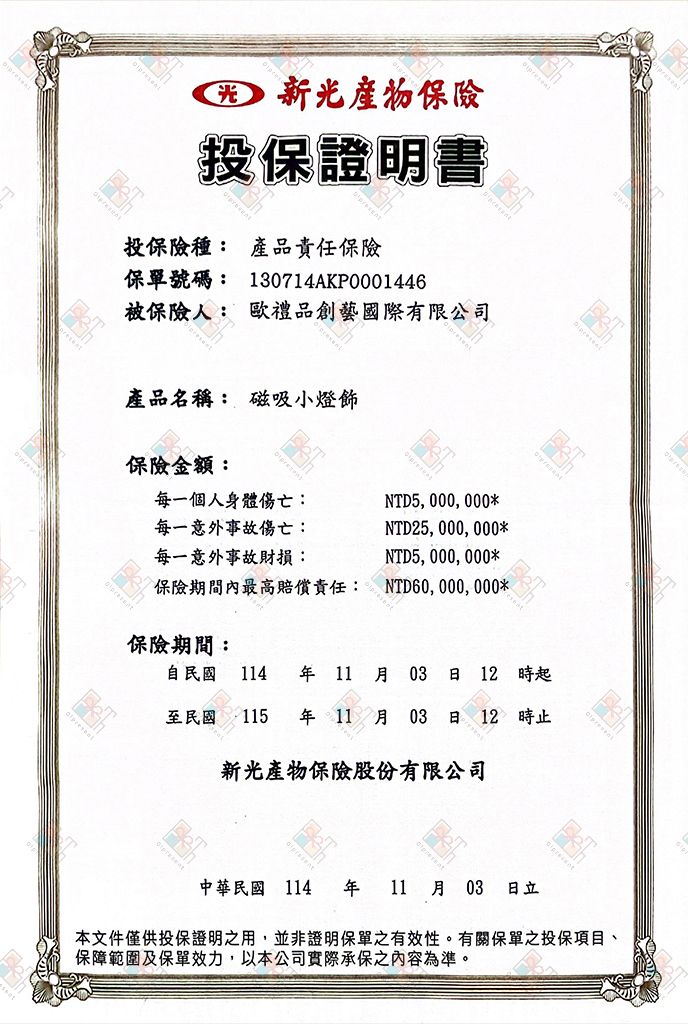 光 新光產物保險
投保證明書
投保險種： 產品責任保險
保單號碼： 130714AKP0001446
被保險人： 歐禮品創藝國際有限公司
產品名稱： 磁吸小燈飾
保險金額：
每一個人身體傷亡： NTD5,000,000*
每一意外事故傷亡： NTD25,000,000*
每一意外事故財損： NTD5,000,000*
保險期間內最高賠償責任： NTD60,000,000*
保險期間：
自民國 114 年 11 月 03 日 12 時起
至民國 115 年 11 月 03 日 12 時止
新光產物保險股份有限公司
中華民國 114 年 11 月 03 日立
本文件僅供投保證明之用，並非證明保單之有效性。有關保單之投保項目、
保障範圍及保單效力，以本公司實際承保之內容為準。